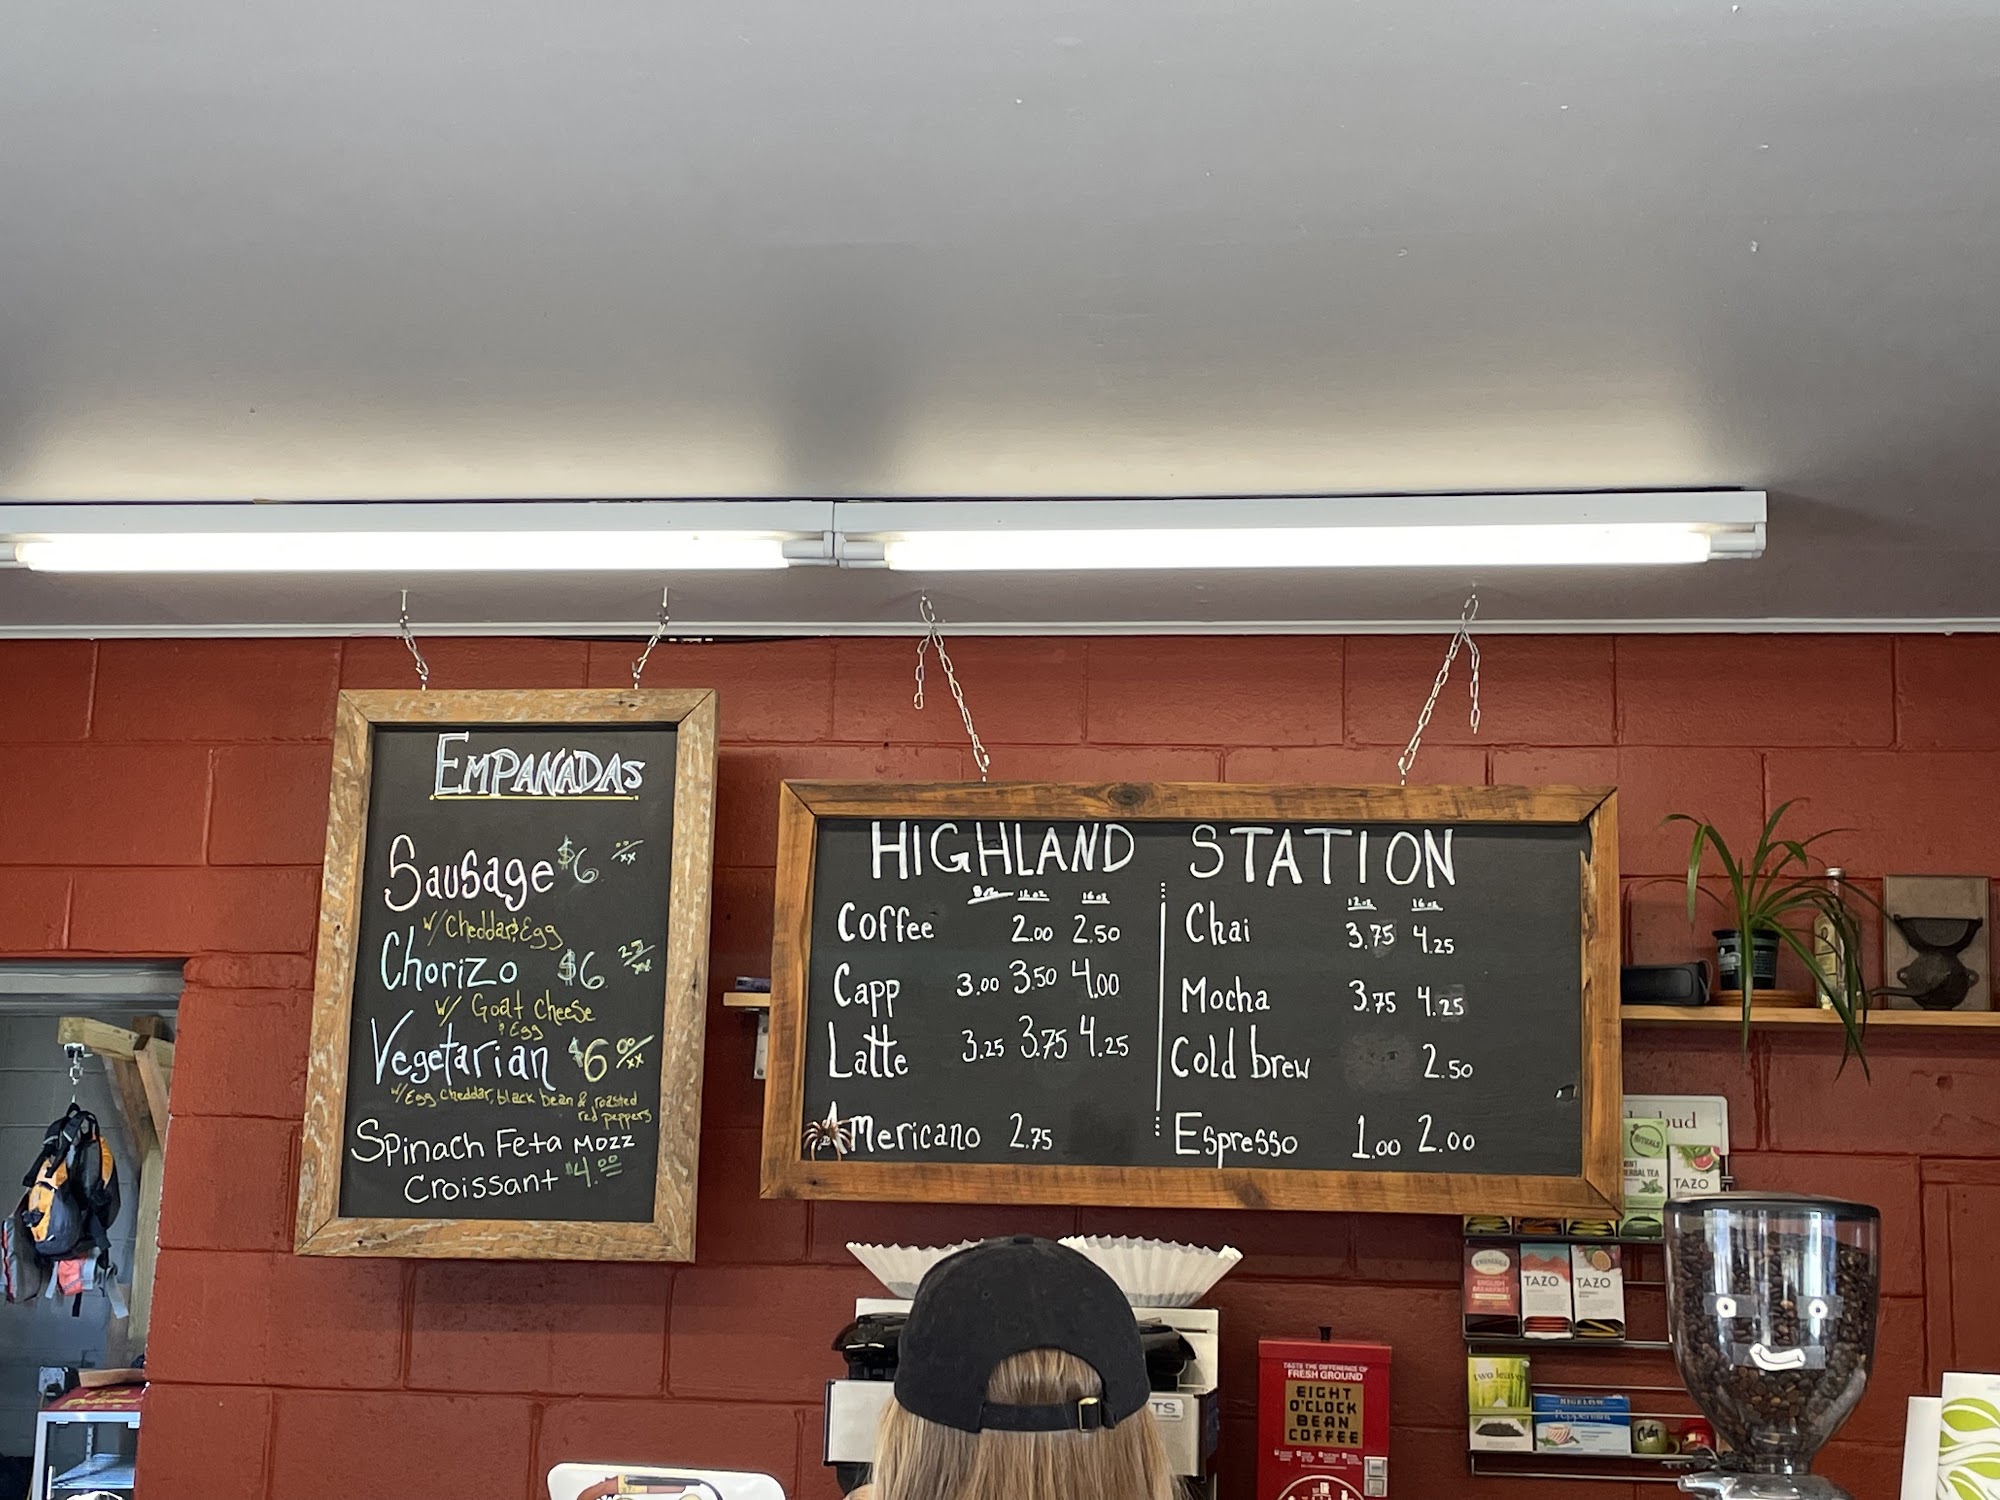 EMPANADAS
Sausage $6.00/xx
w/ Cheddar, Egg
Chorizo $6
w/ Goat Cheese
& Egg
Vegetarian $6.00/xx
w/ Egg cheddar, black bean & roasted
red peppers
Spinach Feta Mozz
Croissant $4.00
HIGHLAND STATION
8oz 12oz 16oz
Coffee 2.00 2.50
Capp 3.00 3.50 4.00
Latte 3.25 3.75 4.25
Americano 2.75
12oz 16oz
Chai 3.75 4.25
Mocha 3.75 4.25
Cold brew 2.50
Espresso 1.00 2.00
TASTE THE DIFFERENCE OF
FRESH GROUND
EIGHT
O'CLOCK
BEAN
COFFEE
TAZO
ENGLISH
BREAKFAST
TAZO
TAZO
two leaves
BIGELOW
Peppermint